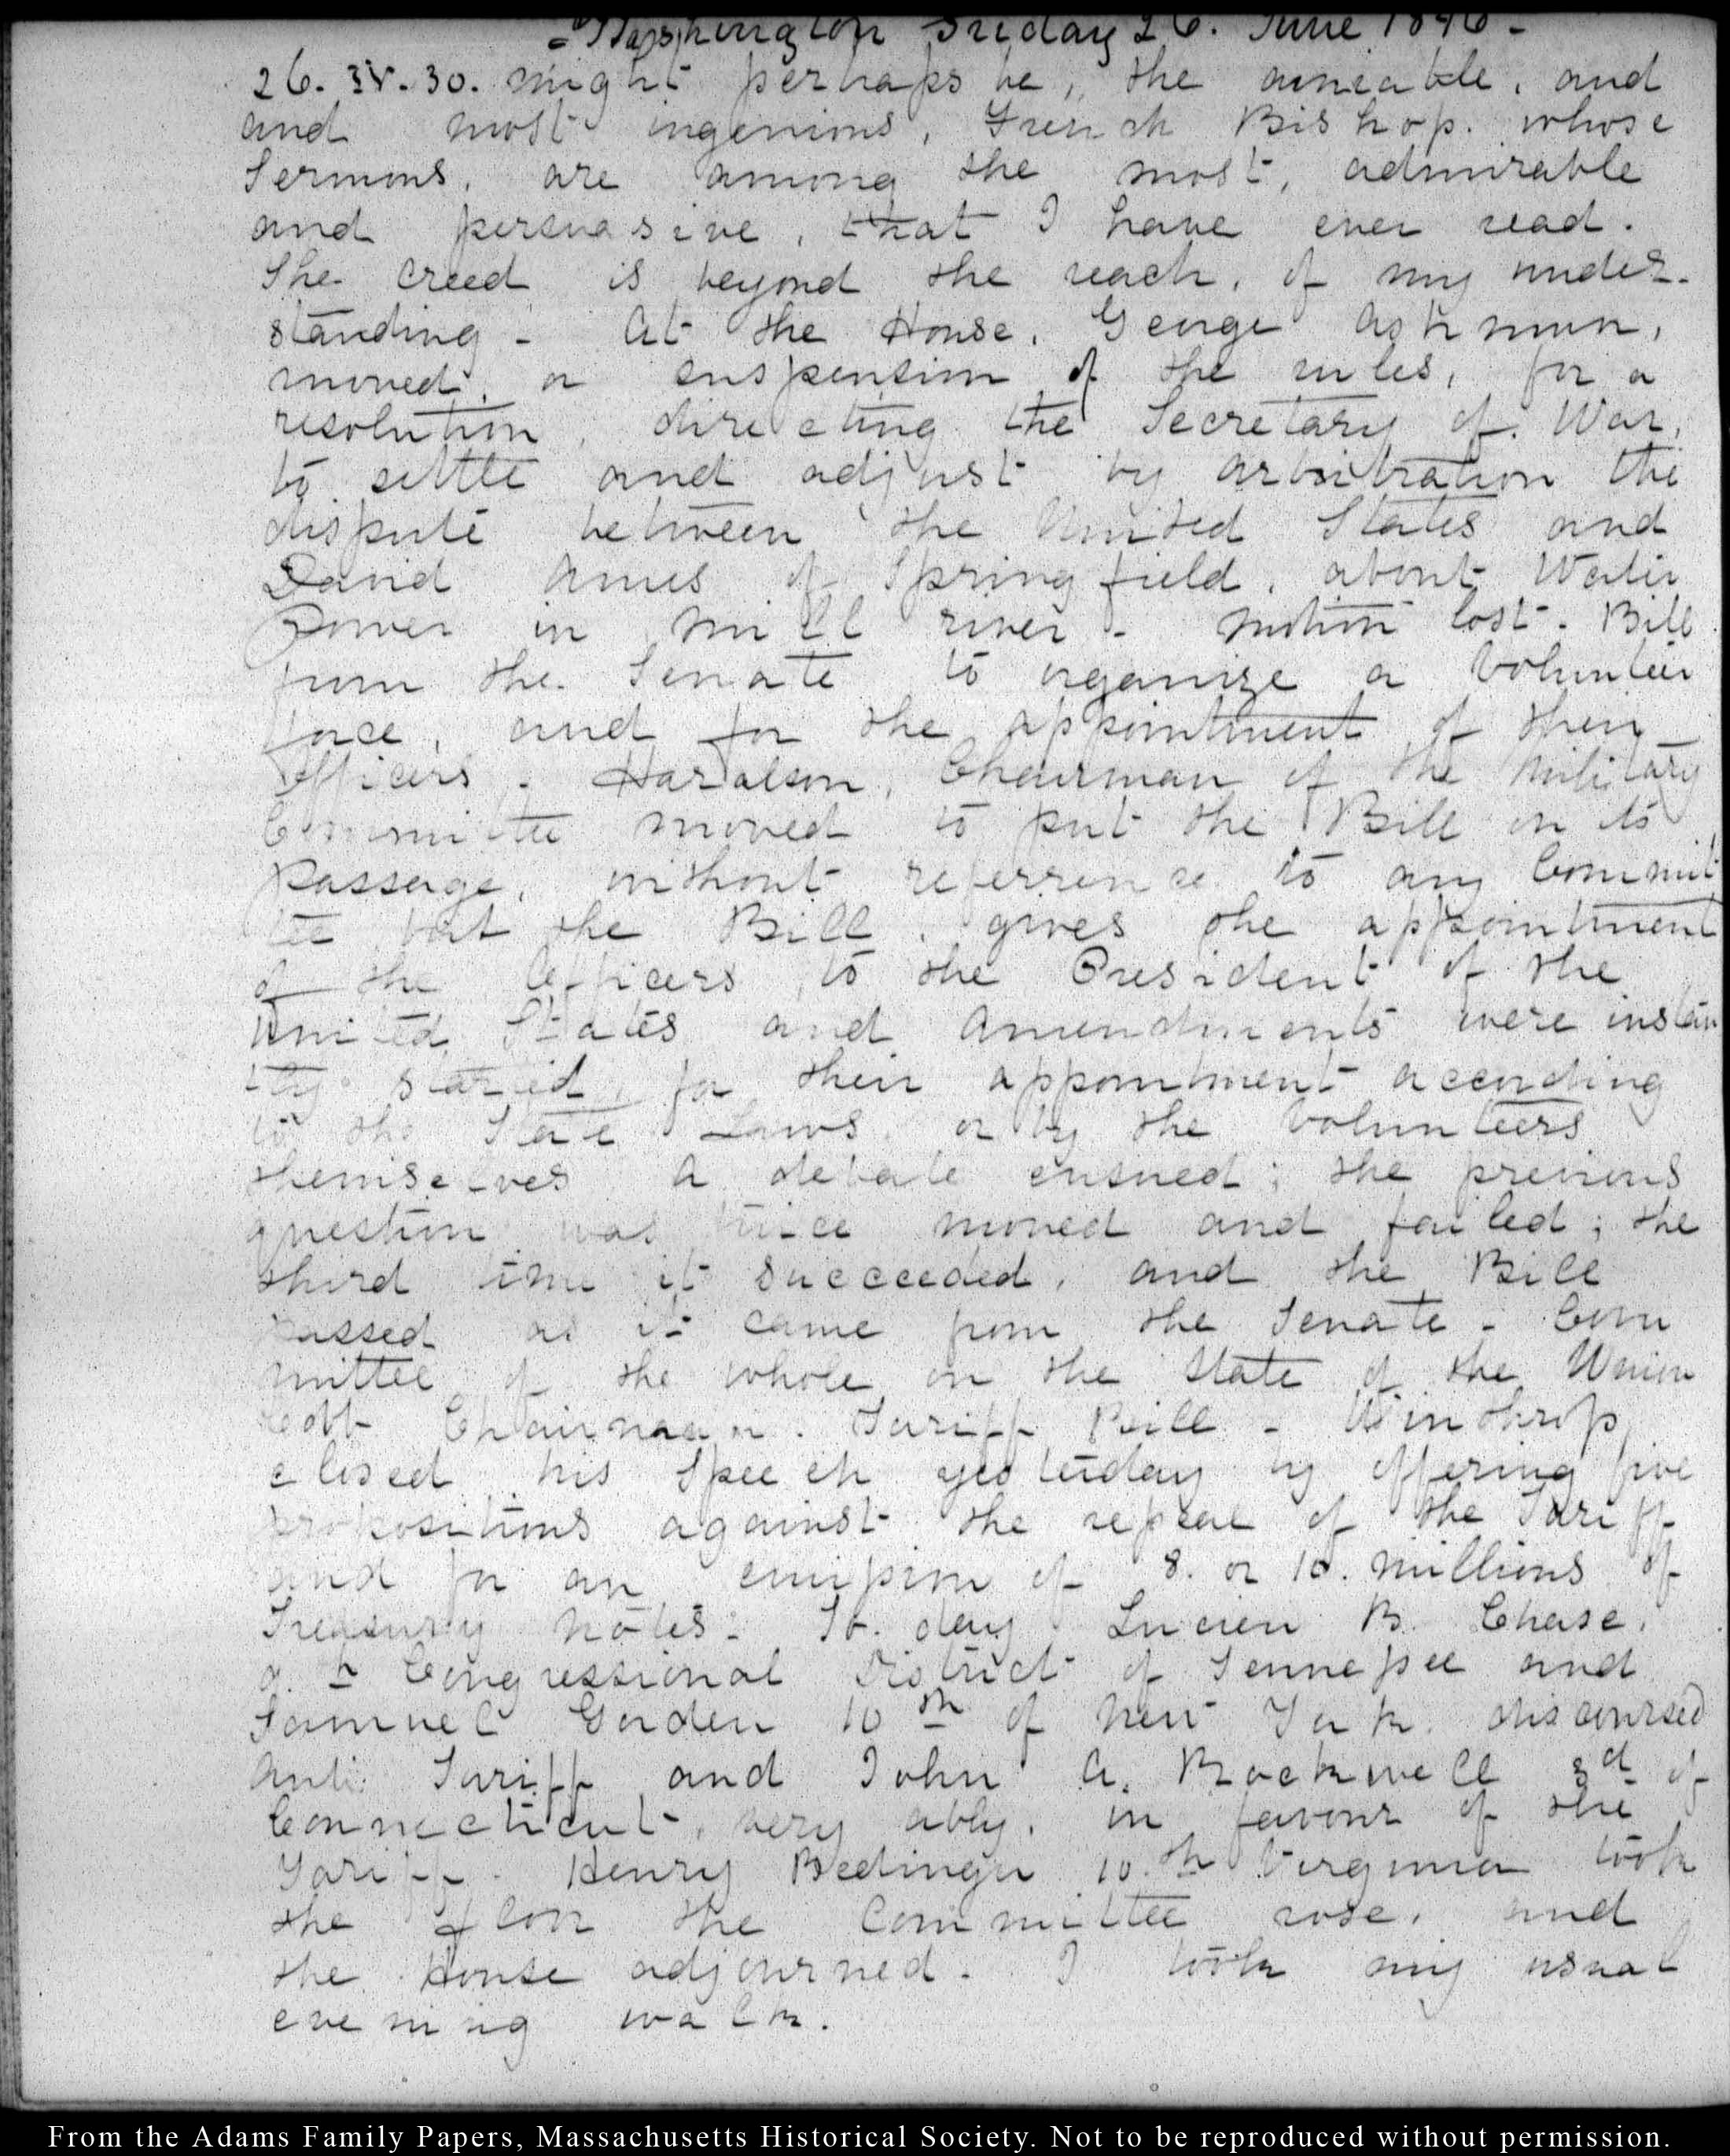 - Washington Friday 26. June 1846 -
26. IV. 30. might perhaps be, the amiable, and
and most ingenious, French Bishop. whose
Sermons, are among the most, admirable
and persuasive, that I have ever read.
The creed is beyond the reach, of my under-
standing - At the House, George Ashmun,
moved, a suspension of the rules, for a
resolution, directing the Secretary of War,
to settle and adjust by arbitration the
dispute between the United States and
David Ames of Springfield, about Water
Power in Mill river - Motion lost - Bill
from the Senate to organize a Volunteer
force, and for the appointment of their
Officers - Haralson, Chairman of the Military
Committee moved to put the Bill on its
passage, without referrence to any Commit
tee but the Bill, gives the appointment
of the Officers to the President of the
United States and Amendments were instan
tly started, for their appointment according
to the State Laws, or by the Volunteers
themselves A debate ensued; the previous
question was twice moved and failed; the
third time it succeeded, and the Bill
passed as it came from the Senate - Com
mittee of the whole on the State of the Union
Cobb Chairman. Tariff Bill - Winthrop
closed his Speech yesterday by offering five
propositions against the repeal of the Tariff
and for an emission of 8. or 10. millions of
Treasury Notes - To day Lucien B. Chase,
Congressional District of Tennessee and
Samuel Gordon 10th of New York discoursed
Anti Tariff and John A. Rockwell 3d of
Connecticut, very ably, in favour of the
Tariff. Henry Bedinger 10.th Virginia took
the floor the Committee rose, and
the House adjourned. I took my usual
evening walk.
From the Adams Family Papers, Massachusetts Historical Society. Not to be reproduced without permission.